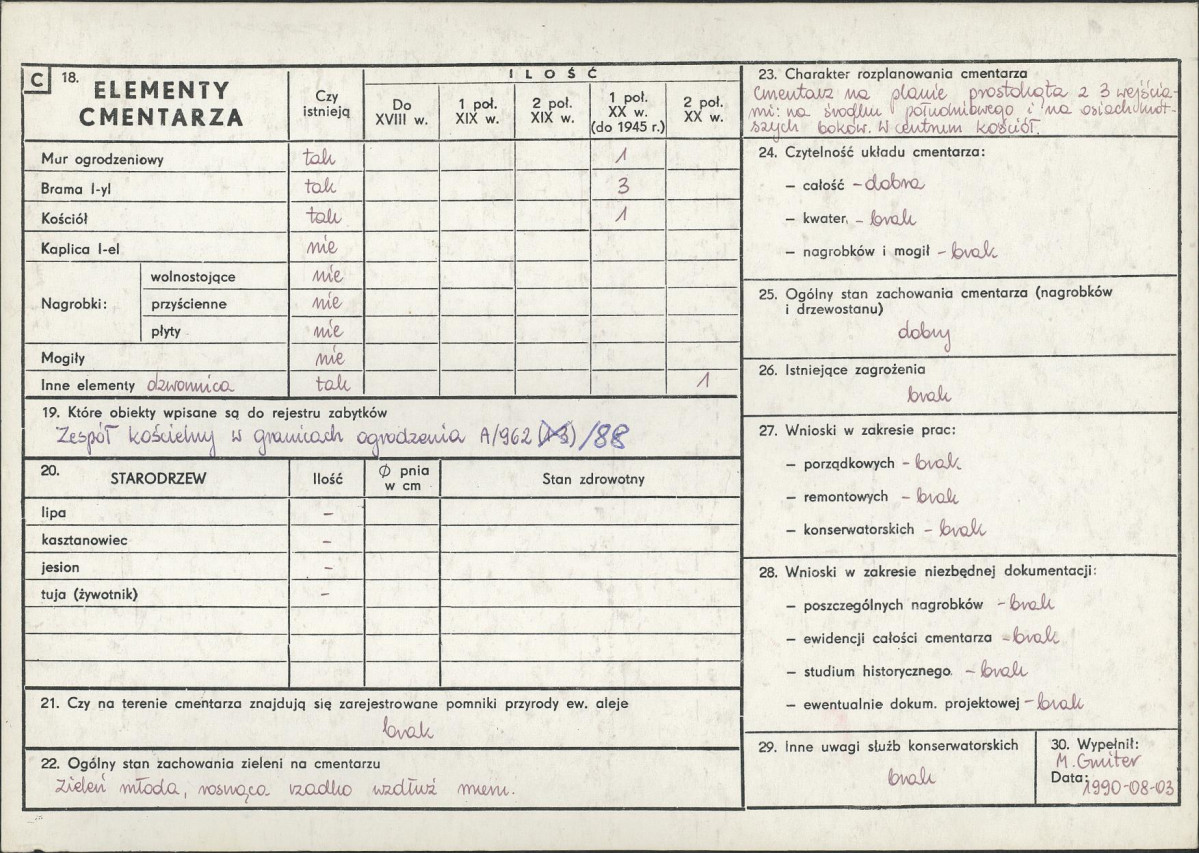 C 18. ELEMENTY CMENTARZA
Czy istnieją
ILOŚĆ
Do XVIII w.
1 poł. XIX w.
2 poł. XIX w.
1 poł. XX w. (do 1945 r.)
2 poł. XX w.
Mur ogrodzeniowy tak 1
Brama I-yl tak 3
Kościół tak 1
Kaplica I-el nie
Nagrobki: wolnostojące nie
przyścienne nie
płyty nie
Mogiły nie
Inne elementy dzwonnica tak 1
19. Które obiekty wpisane są do rejestru zabytków
Zespół kościelny w granicach ogrodzenia A/962 /88
20. STARODRZEW Ilość Ø pnia w cm Stan zdrowotny
lipa –
kasztanowiec –
jesion –
tuja (żywotnik) –
21. Czy na terenie cmentarza znajdują się zarejestrowane pomniki przyrody ew. aleje
brak
22. Ogólny stan zachowania zieleni na cmentarzu
Zieleń młoda, rosnąca rzadko wzdłuż muru.
23. Charakter rozplanowania cmentarza
Cmentarz na planie prostokąta z 3 wejścia-
mi: na środku południowego i na osiach krót-
szych boków. W centrum kościół.
24. Czytelność układu cmentarza:
– całość – dobra
– kwater – brak
– nagrobków i mogił – brak
25. Ogólny stan zachowania cmentarza (nagrobków
i drzewostanu)
dobry
26. Istniejące zagrożenia
brak
27. Wnioski w zakresie prac:
– porządkowych – brak
– remontowych – brak
– konserwatorskich – brak
28. Wnioski w zakresie niezbędnej dokumentacji:
– poszczególnych nagrobków – brak
– ewidencji całości cmentarza – brak
– studium historycznego – brak
– ewentualnie dokum. projektowej – brak
29. Inne uwagi służb konserwatorskich
brak
30. Wypełnił:
M. Gmiter
Data: 1990-08-03